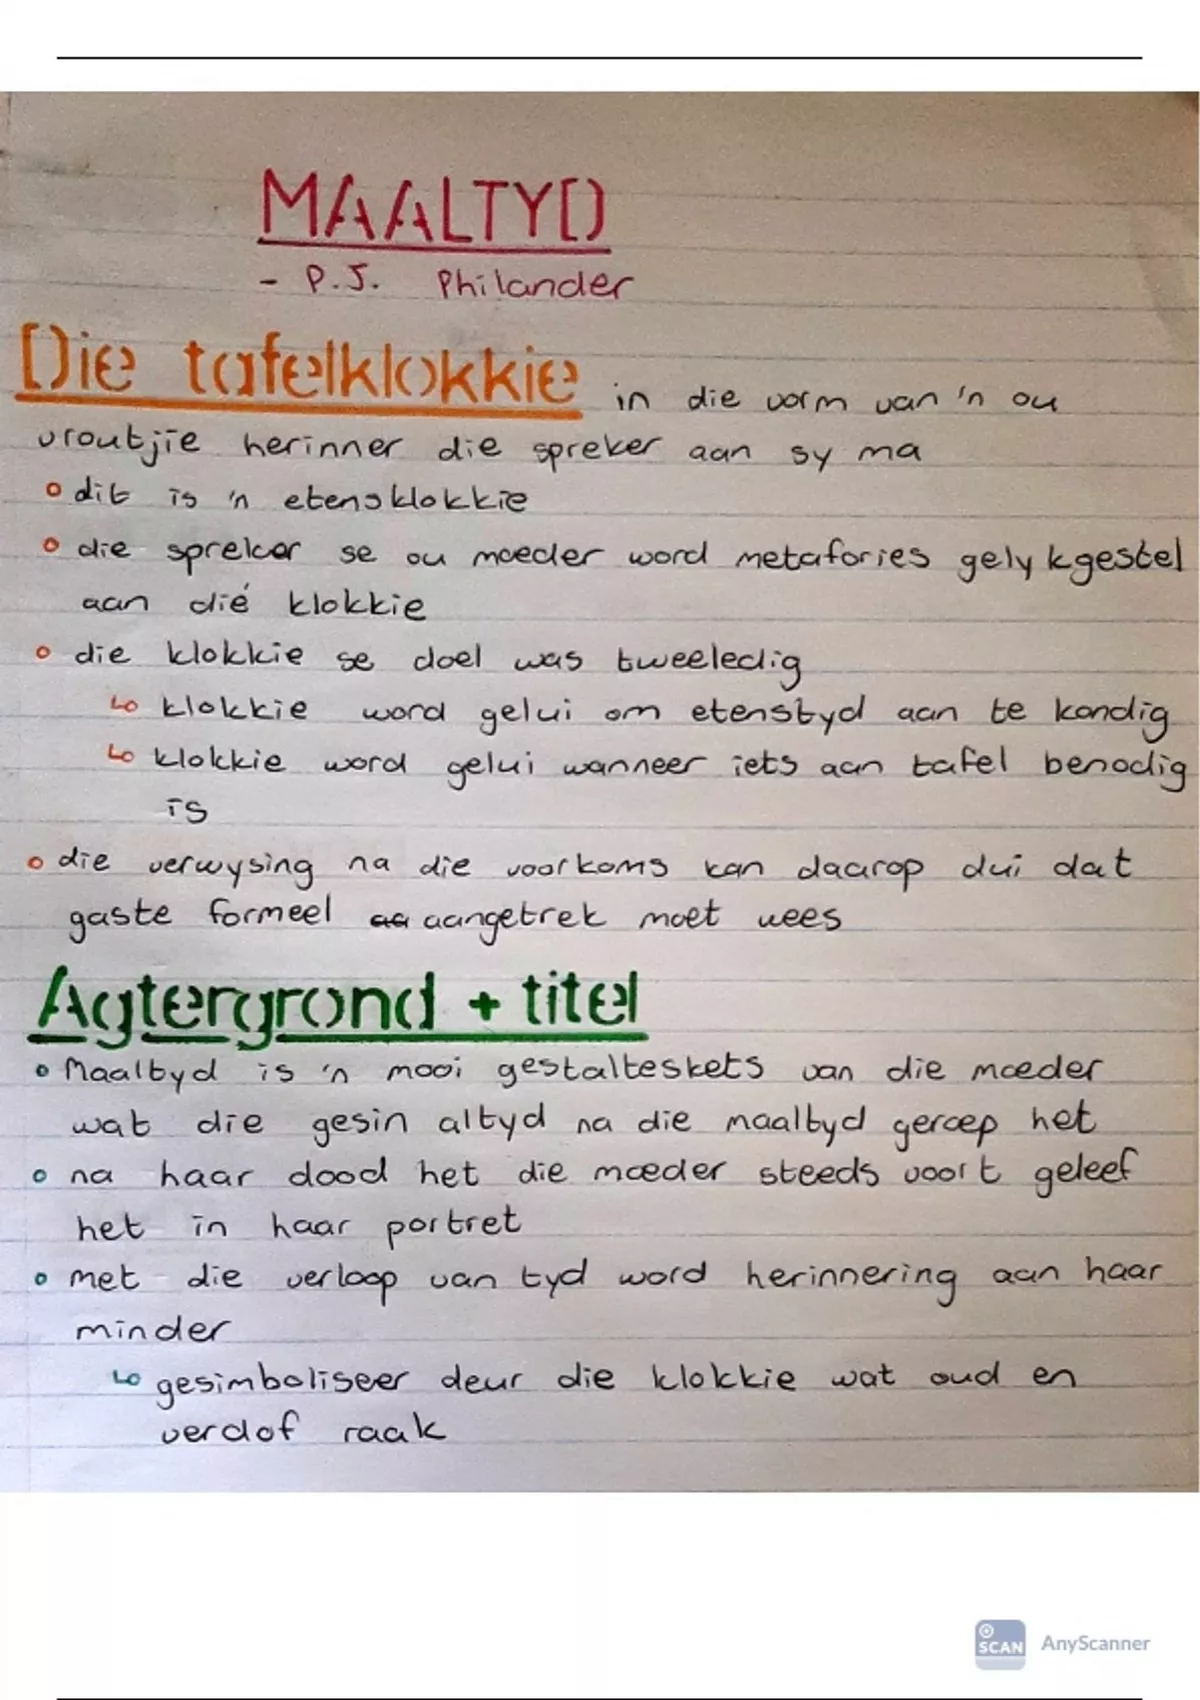 MAALTYD
- P.J. Philander
Die tafelklokkie in die vorm van 'n ou
vroutjie herinner die spreker aan sy ma
o dit is 'n etensklokkie
o die spreker se ou moeder word metafories gelykgestel
aan dié klokkie
o die klokkie se doel was tweeledig
↳ klokkie word gelui om etenstyd aan te kondig
↳ klokkie word gelui wanneer iets aan tafel benodig
is
o die verwysing na die voorkoms kan daarop dui dat
gaste formeel aangetrek moet wees
Agtergrond + titel
o Maaltyd is 'n mooi gestalteskets van die moeder
wat die gesin altyd na die maaltyd geroep het
o na haar dood het die moeder steeds voort geleef
het in haar portret
o met die verloop van tyd word herinnering aan haar
minder
↳ gesimboliseer deur die klokkie wat oud en
verdof raak
SCAN AnyScanner